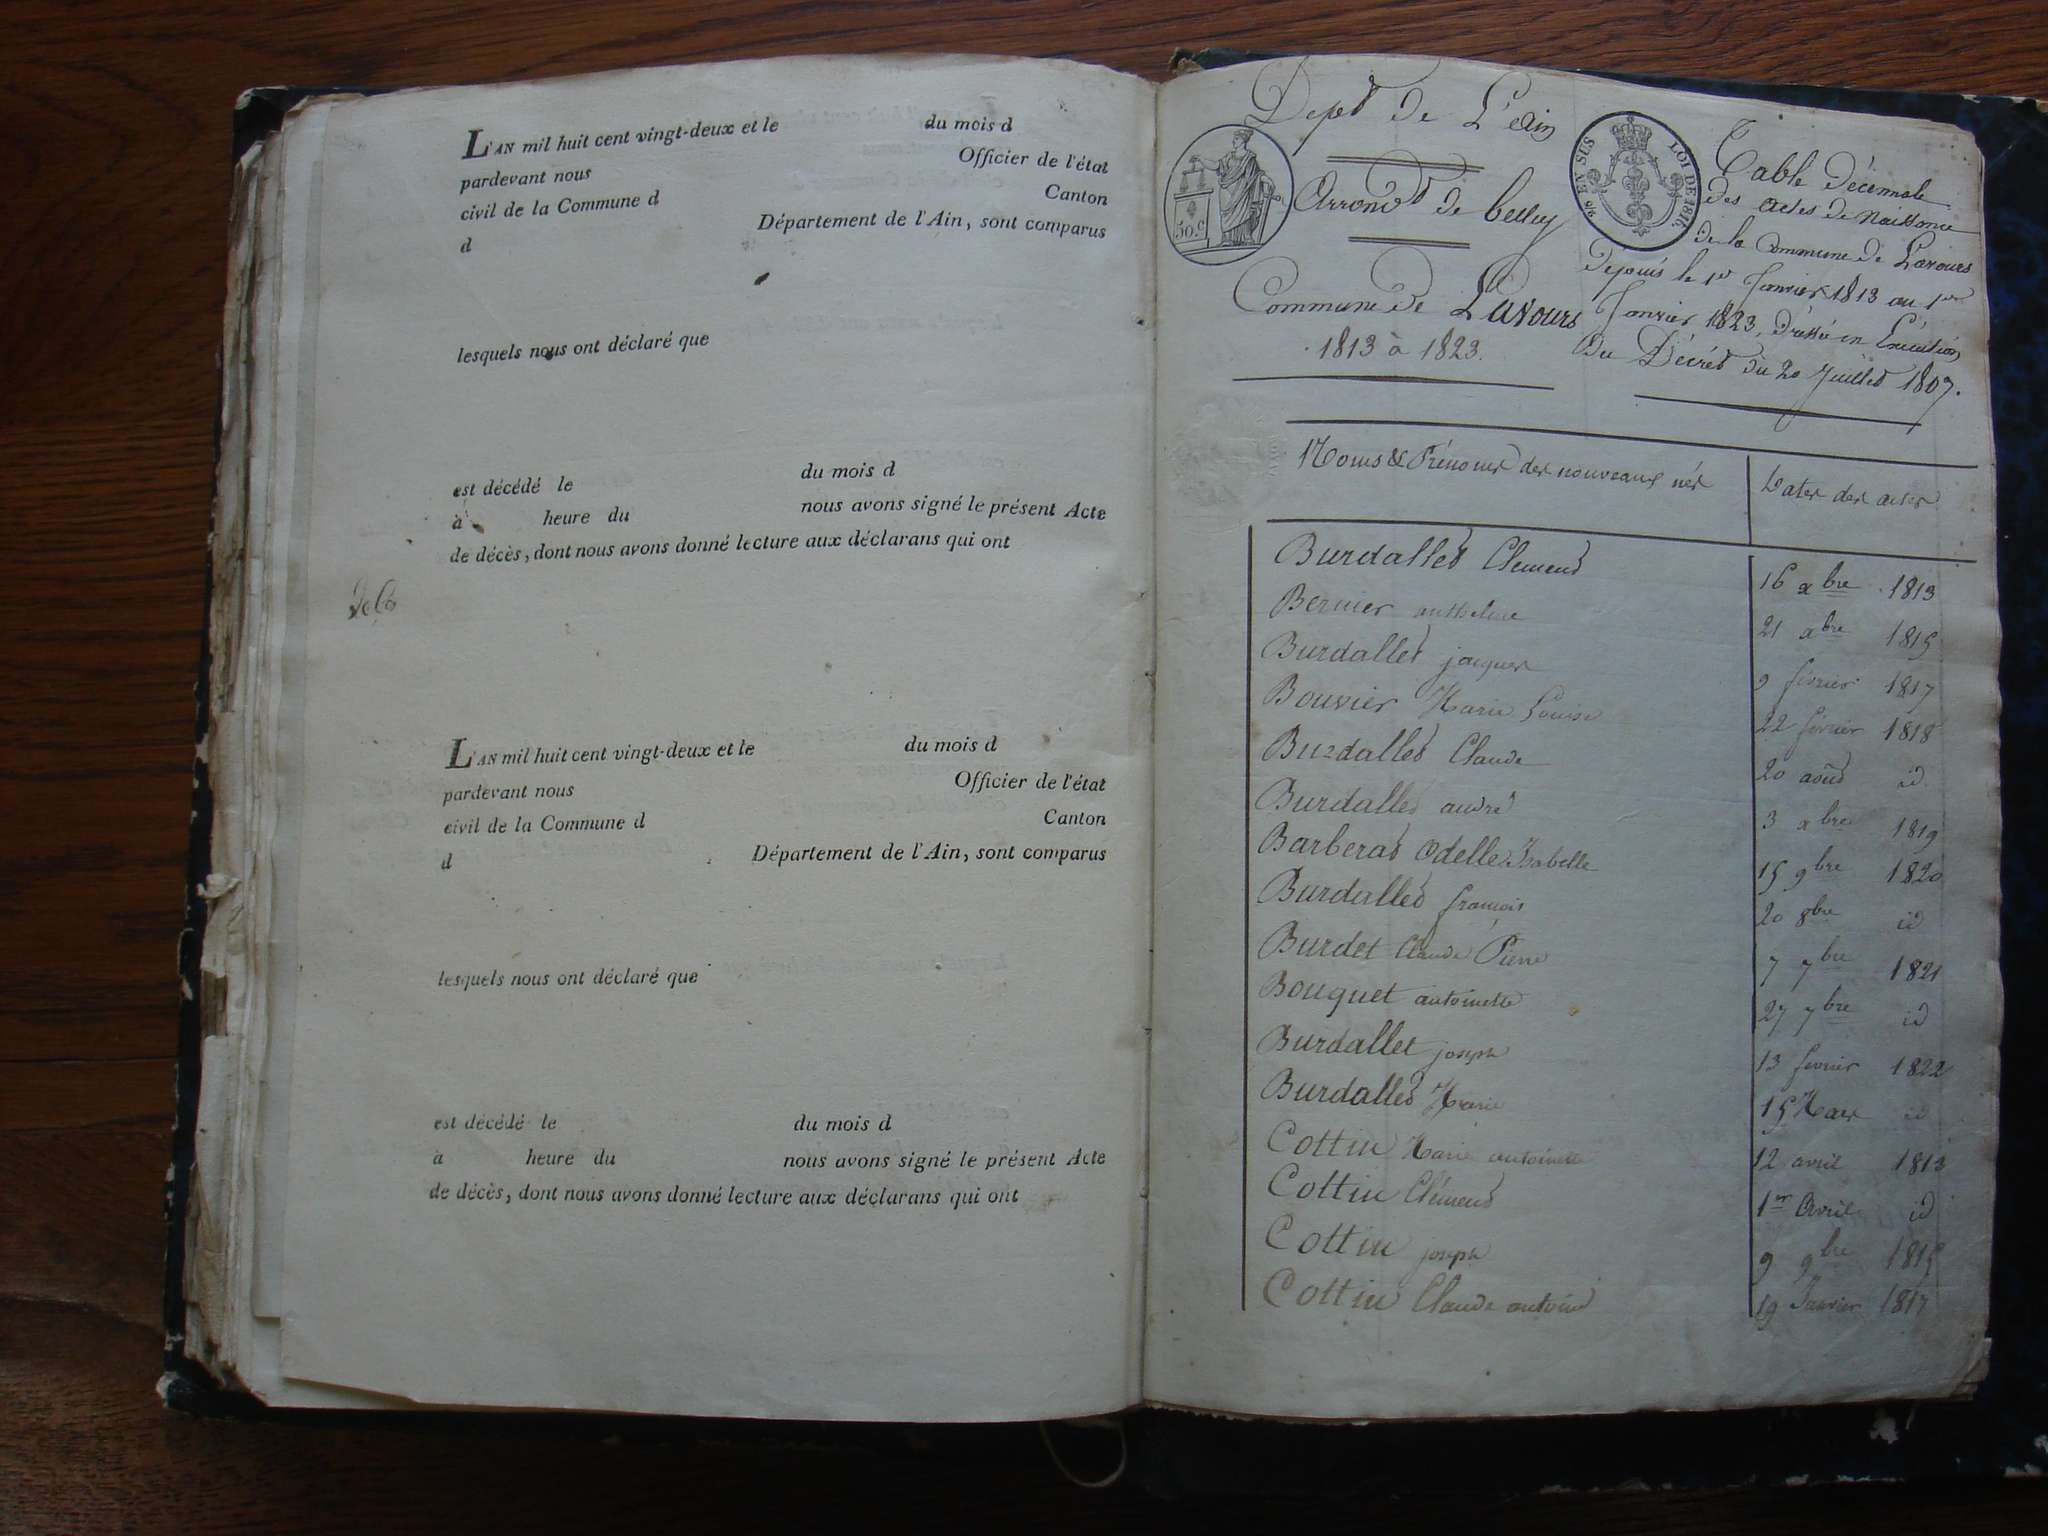 L'AN mil huit cent vingt-deux et le du mois d
pardevant nous Officier de l'état
civil de la Commune d Canton
d Département de l'Ain, sont comparus
lesquels nous ont déclaré que
est décédé le du mois d
à heure du nous avons signé le présent Acte
de décès, dont nous avons donné lecture aux déclarans qui ont
L'AN mil huit cent vingt-deux et le du mois d
pardevant nous Officier de l'état
civil de la Commune d Canton
d Département de l'Ain, sont comparus
lesquels nous ont déclaré que
est décédé le du mois d
à heure du nous avons signé le présent Acte
de décès, dont nous avons donné lecture aux déclarans qui ont
Dept de L'ain
50 c
Arrondt de belley
Commune de Lavours
1813 à 1823.
EN SUS LOI DE 1816
Table décennale
des actes de Naissance
de la Commune de Lavours
depuis le 1er Janvier 1813 au 1er
Janvier 1823, dressée en Exécution
du Décret du 20 Juillet 1807.
Noms & Prénoms des nouveaux nés Dates des actes
Burdallet Clement 16 xbre 1813
Bernier anthelme 21 xbre 1815
Burdallet jacques 9 février 1817
Bouvier Marie Louise 22 février 1818
Burdallet Claude 20 août id
Burdallet andré 3 xbre 1819
Barberat Odelle Isabelle 15 9bre 1820
Burdallet françois 20 8bre id
Burdet Claude Pierre 7 7bre 1821
Bouquet antoinette 27 7bre id
Burdallet joseph 13 fevrier 1822
Burdallet Marie 15 Mars id
Cottin Marie antoinette 12 avril 1813
Cottin Clément 1er Avril id
Cottin joseph 9 9bre 1815
Cottin Claude antoine 19 Janvier 1817